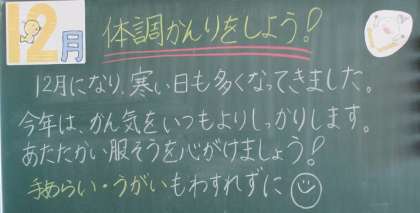 12月
体調かんりをしよう!
12月になり、寒い日も多くなってきました。
今年は、かん気をいつもよりしっかりします。
あたたかい服そうを心がけましょう!
手あらい・うがいもわすれずに